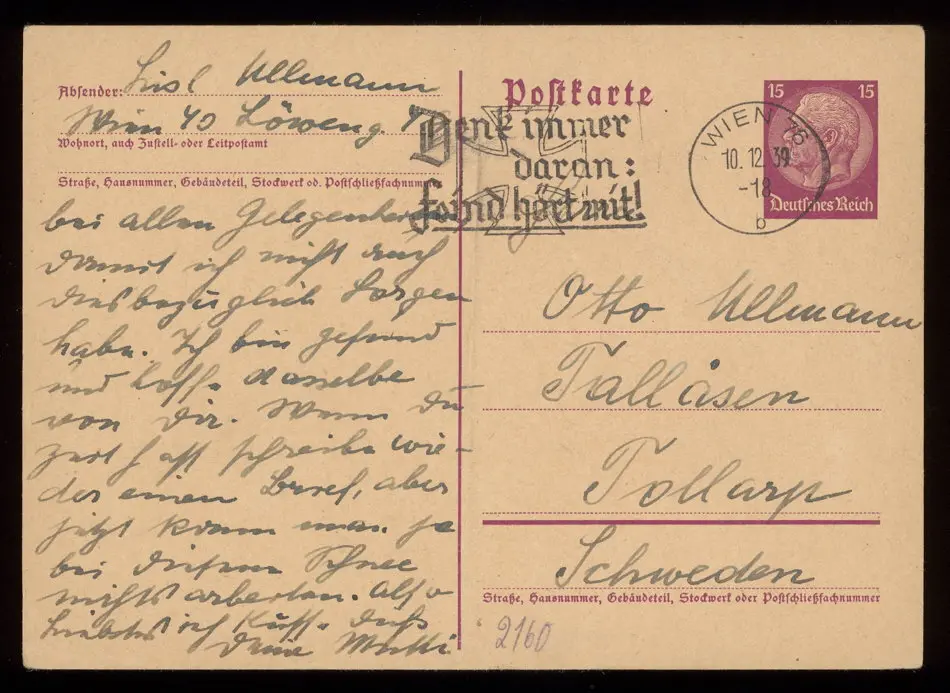 Absender: Lisl Ullmann
Wien 40 Löweng.
Wohnort, auch Zustell- oder Leitpostamt
Straße, Hausnummer, Gebäudeteil, Stockwerk od. Postschließfachnummer
bei allen Gelegenheiten
damit ich nicht auch
diesbezüglich Sorgen
habe. Ich bin gesund
und hoffe dasselbe
von dir. Wenn du
Zeit hast schreibe wie-
der einen Brief, aber
jetzt kann man ja
bei diesem Schnee
nichts arbeiten. Also
Liebster ich küsse dich
Deine Mutti.
Postkarte
Denk' immer
daran:
Feind hört mit!
WIEN 76
10.12.39
-18
b
15 15
Deutsches Reich
Otto Ullmann
Talläsen
Tollarp
Schweden
Straße, Hausnummer, Gebäudeteil, Stockwerk oder Postschließfachnummer
2160